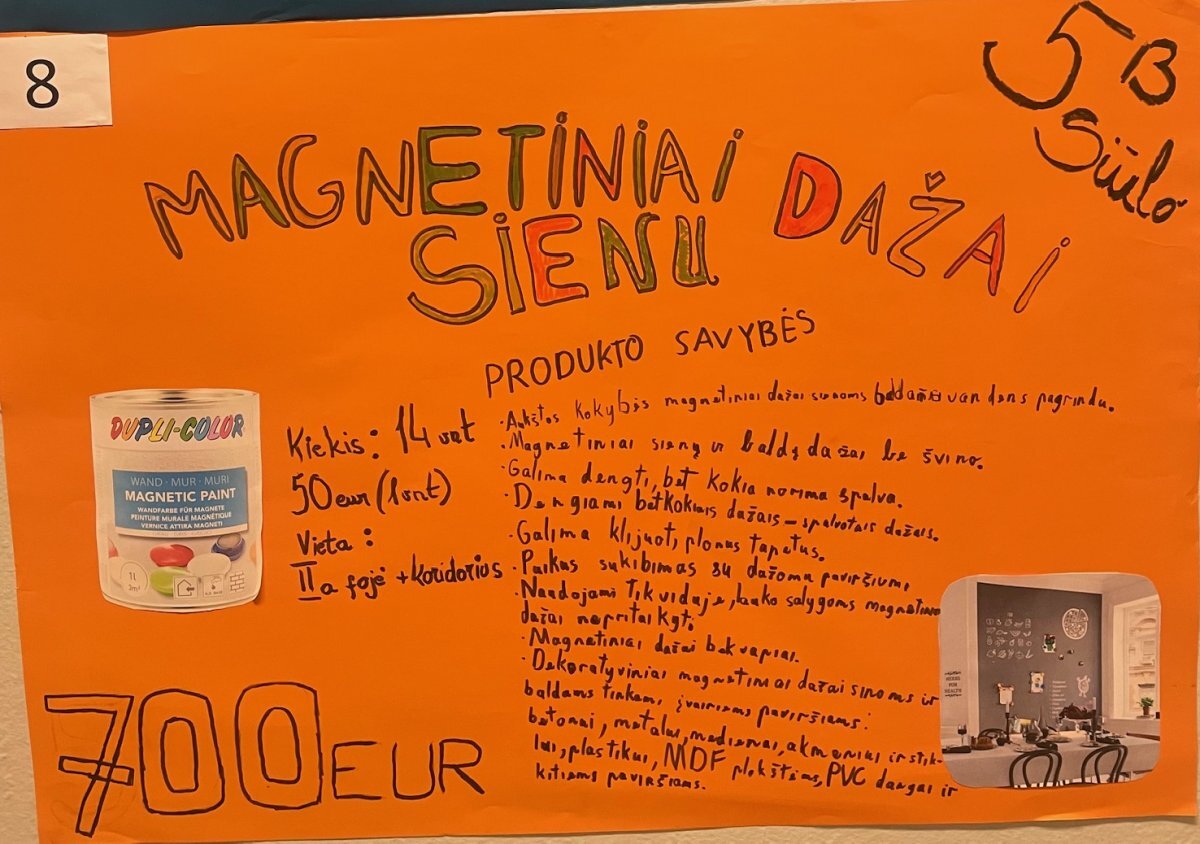 8
5B
Siūlo
MAGNETINIAI DAŽAI
SIENU
PRODUKTO SAVYBĖS
Kiekis: 14 vnt
50 eur (1 vnt)
Vieta:
II a fojė + koridorius
· Aukštos kokybės magnetiniai dažai sienoms vandens pagrindu.
· Magnetiniai sienų ir baldų dažai be švino.
· Galima dengti, bet kokia norima spalva.
· Dengiami betkokiais dažais – spalvotais dažais.
· Galima klijuoti, plonus tapetus.
· Puikus sukibimas su dažomu paviršiumi,
· Naudojami tik viduje, lauko sąlygoms magnetiniai
dažai nepritaikyti.
· Magnetiniai dažai bekvapiai.
· Dekoratyviniai magnetiniai dažai sinoms ir
baldams tinkami, įvairiems paviršiams:
betonui, metalui, medienai, akmeniui ir stik-
lui, plastikui, MDF plokštėms, PVC dangai ir
kitiems paviršiams.
700 EUR
DUPLI-COLOR
WAND · MUR · MURI
MAGNETIC PAINT
WANDFARBE FÜR MAGNETE
PEINTURE MURALE MAGNÉTIQUE
VERNICE ATTIRA MAGNETI
1L
2m²